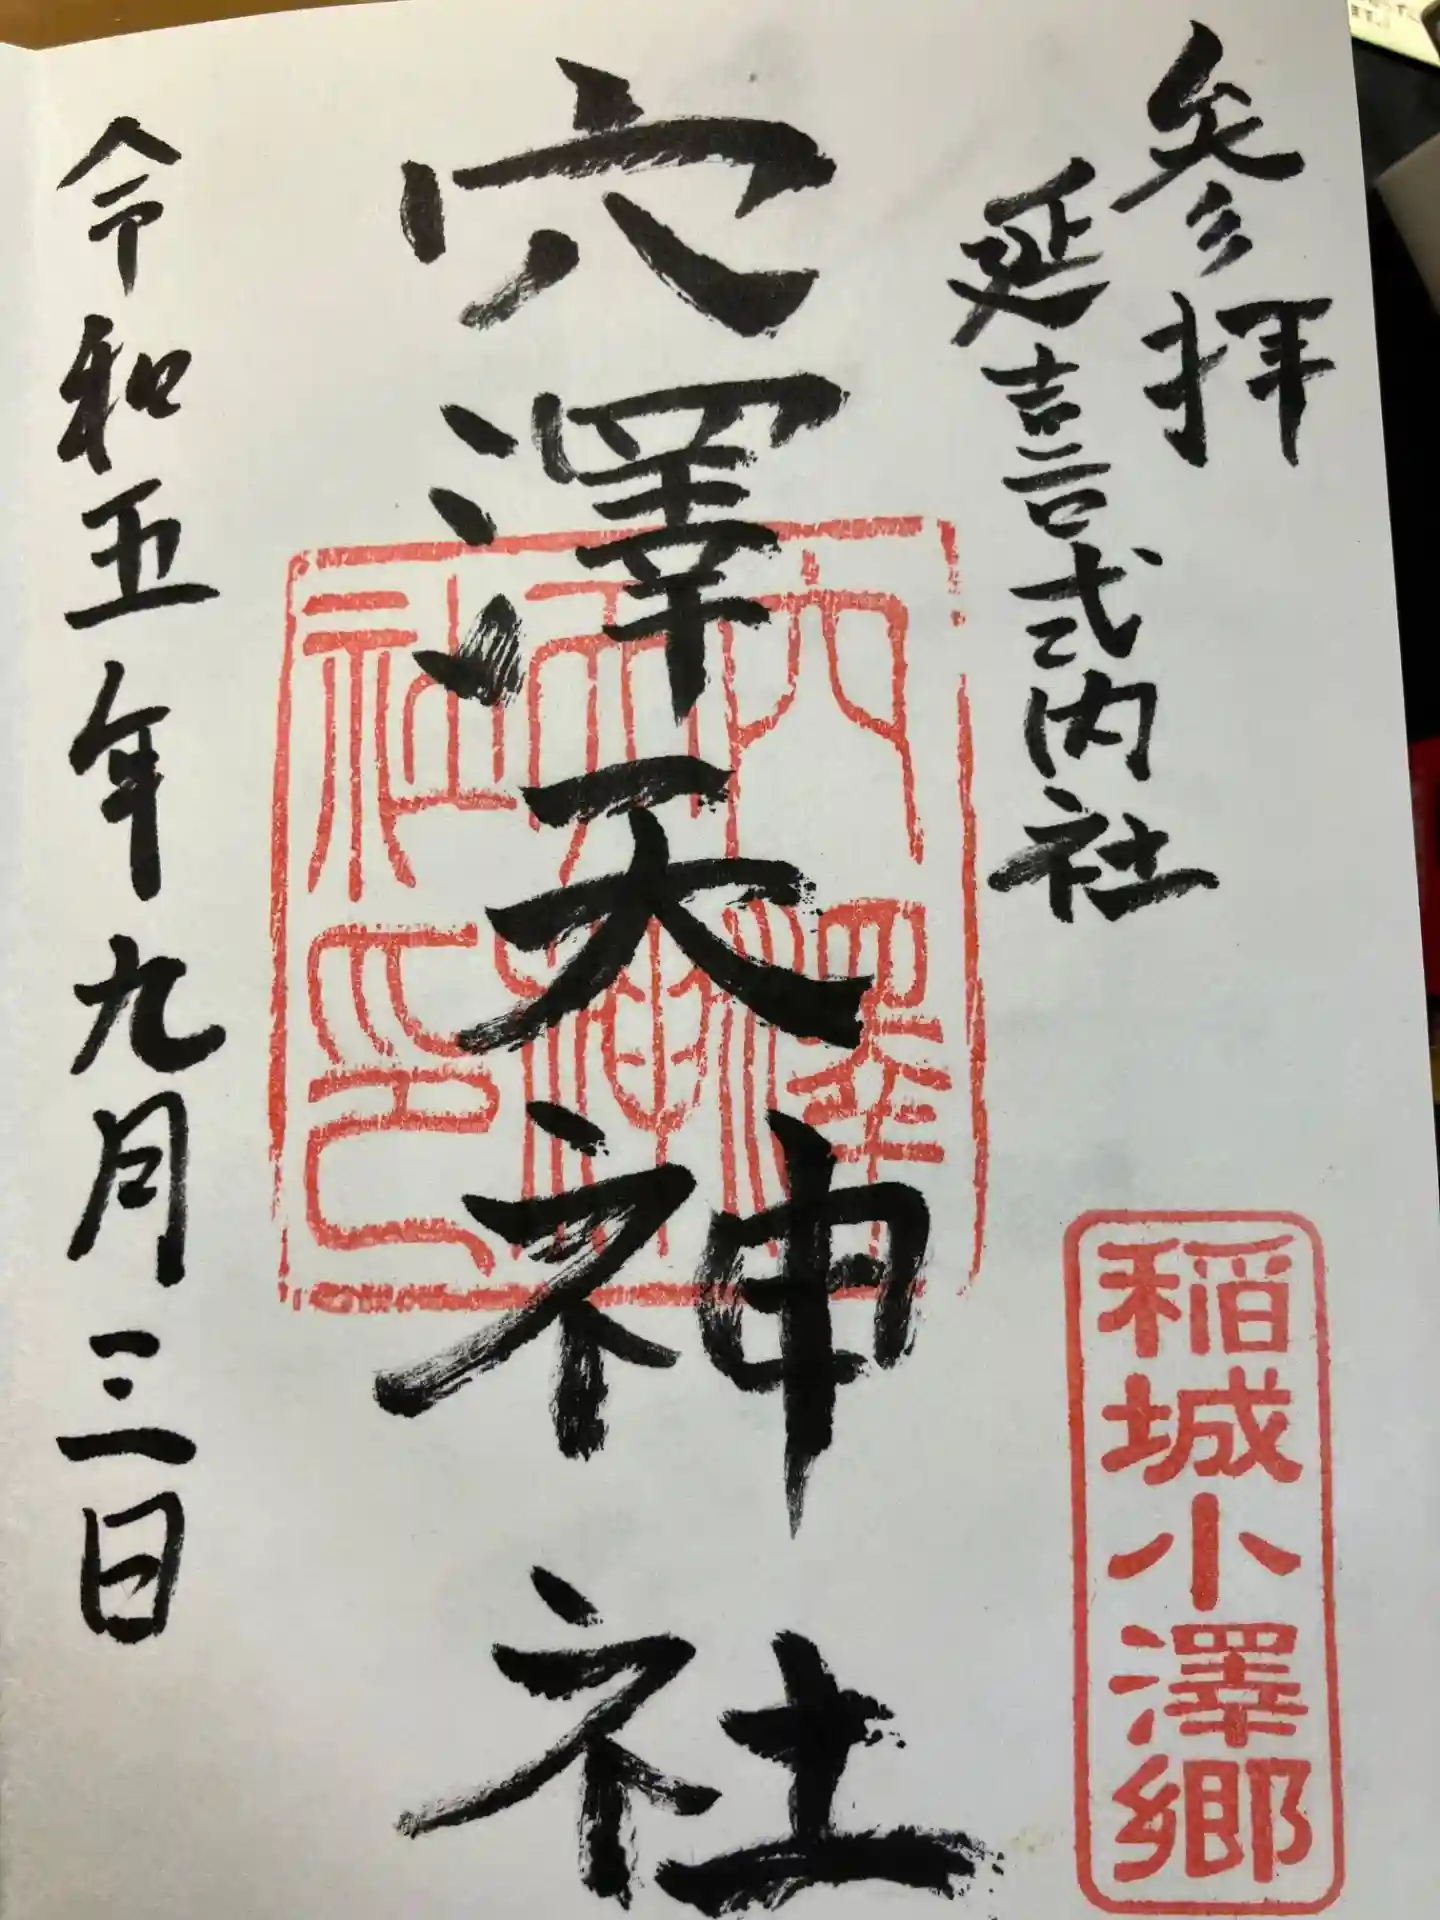 参拝
延喜式内社
稲城小澤郷
穴澤天神社
穴澤
天神
社印
令和五年九月三日